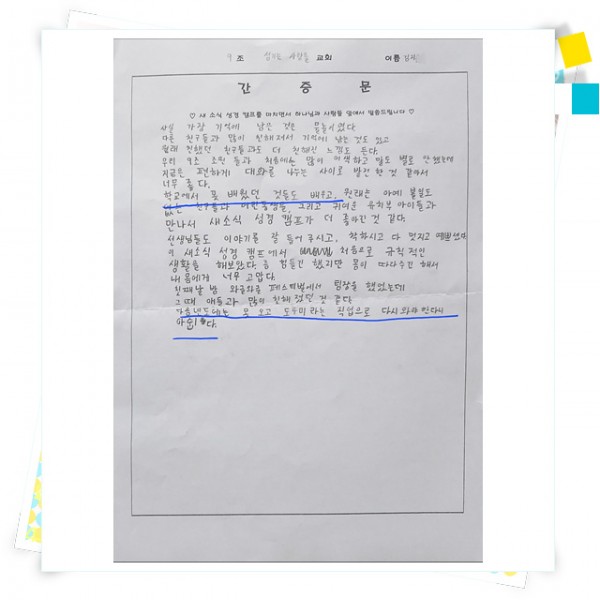 9 조 사랑 교회 이름 김
간 증 문
♡ 새 소식 성경 캠프를 마치면서 하나님과 사람들 앞에서 말씀드립니다 ♡
사실 가장 기억에 남은 것은 물놀이였다.
다른 친구들과 많이 친해져서 기억에 남는 것도 있고
원래 친했던 친구들과도 더 친해진 느낌도 든다.
우리 9조 조원 들과 처음에는 많이 어색하고 말도 별로 안했는데
지금은 편하게 대화를 나누는 사이로 발전 한 것 같아서
너무 좋다.
학교에서 못 배웠던 것들도 배우고, 원래는 아예 볼일도
없는 친구들과 어린동생들, 그리고 귀여운 유치부 아이들과
만나서 새소식 성경 캠프가 더 좋아진것 같다.
선생님들도 이야기를 잘 들어 주시고, 착하시고 다 멋지고 예쁘셨다.
이 새소식 성경 캠프에서 처음으로 규칙적인
생활을 해보았다. 좀 힘들긴 했지만 몸이 따라주긴 해서
내 몸에게 너무 고맙다.
첫째날 밤 와글와글 페스티벌에서 팀장을 했었는데
그때 애들과 많이 친해 졌던 것 같다.
다음년도에는 못 오고 도우미라는 직업으로 다시와야 한다니
아쉽다.